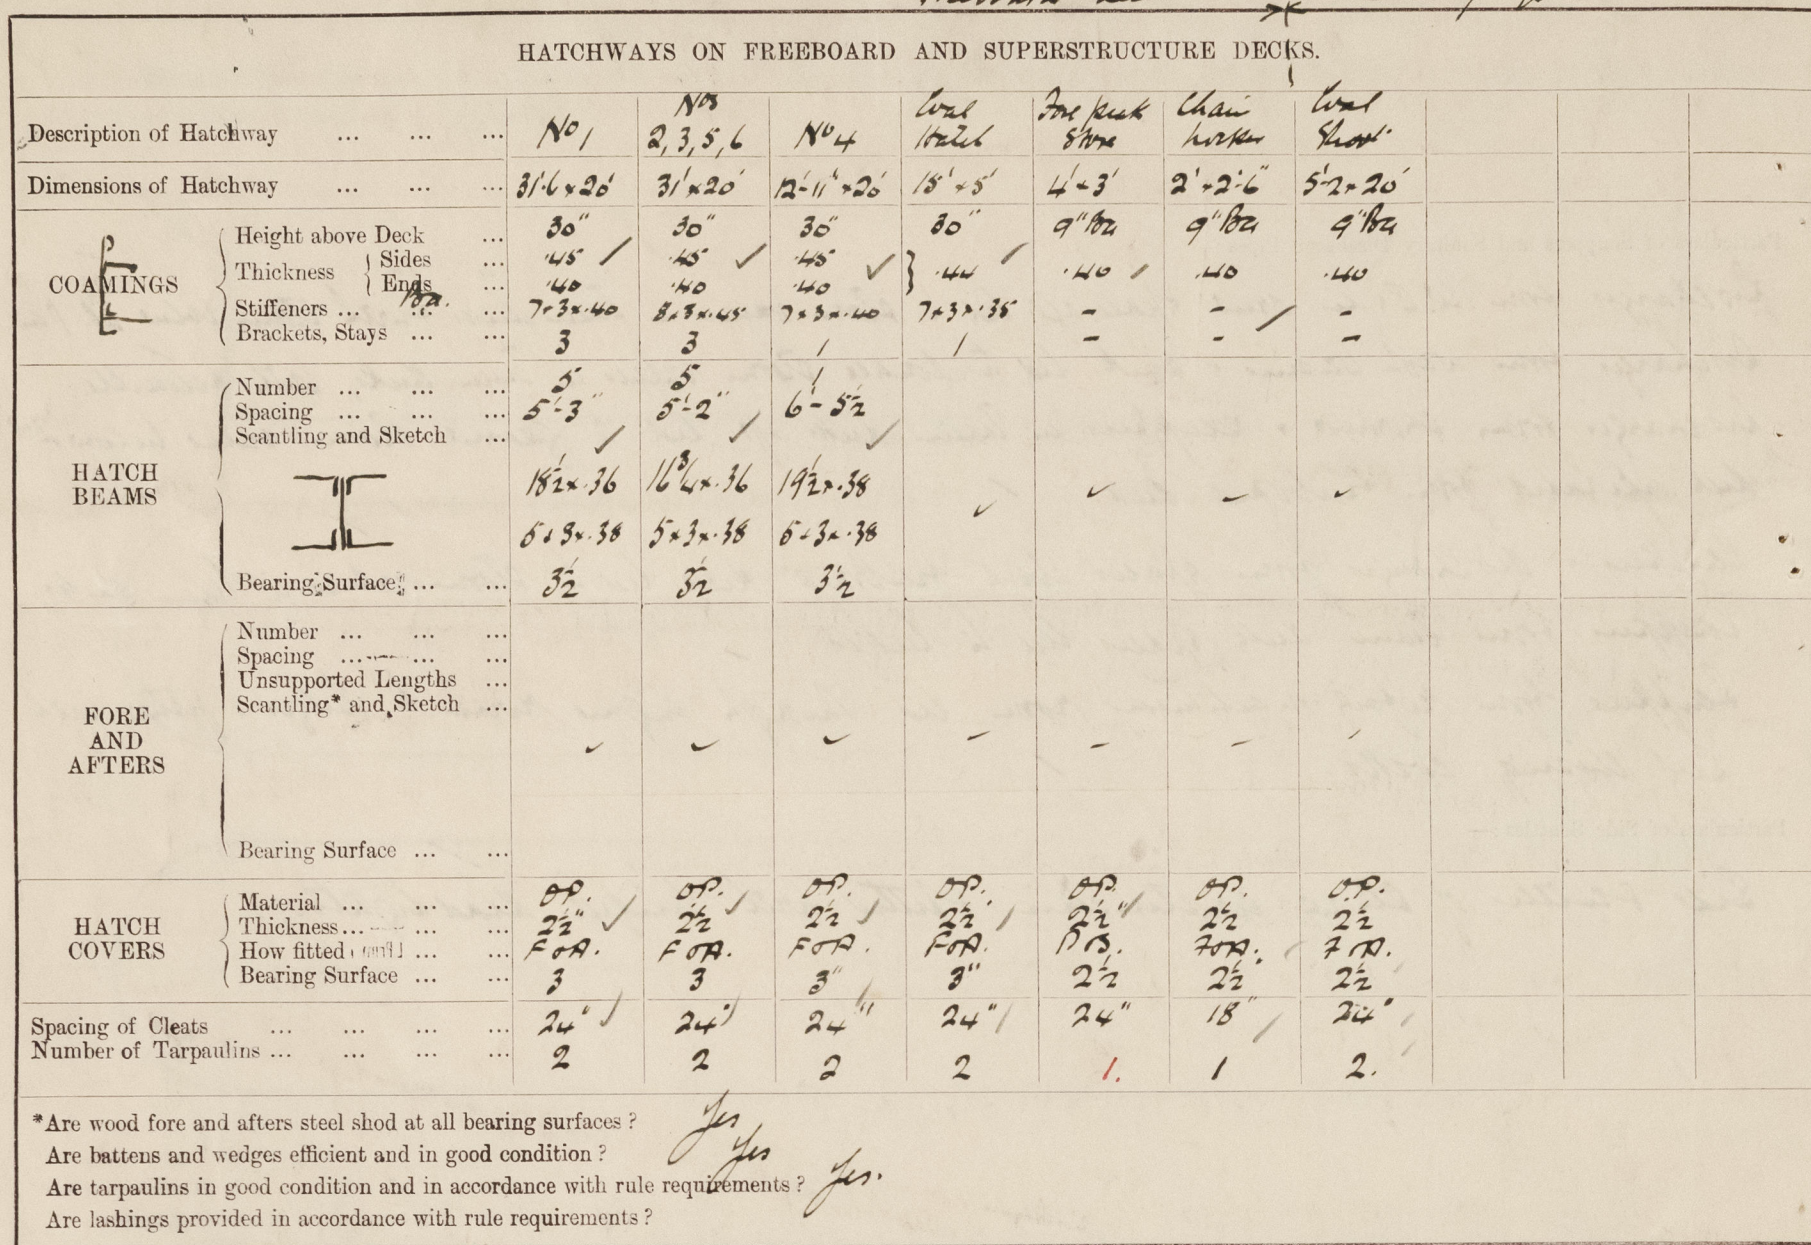 HATCHWAYS ON FREEBOARD AND SUPERSTRUCTURE DECKS.
Description of Hatchway ... ... ... No 1 Nos 2, 3, 5, 6 No 4 Coal Hatch Fore peak Store Chain Locker Coal Shoot
Dimensions of Hatchway ... ... ... 31'-6 × 20' 31' × 20' 12'-11" × 20' 15' × 5' 4' × 3' 2' × 2'-6" 5'-2 × 20'
COAMINGS
Height above Deck ... 30" 30" 30" 30" 9" Ba 9" Ba 9" Ba
Thickness Sides ... .45 .45 .45 .44 .40 .40 .40
Ends ... .40 .40 .40
Stiffeners ... Ba. ... ... 7×3×.40 8×3×.45 7×3×.40 7×3×.35 - - -
Brackets, Stays ... ... 3 3 1 1 - - -
HATCH BEAMS
Number ... ... ... 5 5 1
Spacing ... ... ... 5'-3" 5'-2" 6'-5½
Scantling and Sketch ...
18½×.36 16¾×.36 19½×.38
5×3×.38 5×3×.38 5×3×.38
Bearing Surface ... ... 3½ 3½ 3½
FORE AND AFTERS
Number ... ... ...
Spacing ... ... ...
Unsupported Lengths ...
Scantling* and Sketch ...
Bearing Surface ... ...
HATCH COVERS
Material ... ... ... OP. OP. OP. OP. OP. OP. OP.
Thickness ... ... ... 2½" 2½ 2½ 2½ 2½" 2½ 2½
How fitted ... ... F & A. F & A. F & A. F & A. F & A. F & A.
Bearing Surface ... ... 3 3 3" 3" 2½ 2½ 2½
Spacing of Cleats ... ... ... ... 24" 24" 24" 24" 24" 18" 24"
Number of Tarpaulins ... ... ... ... 2 2 2 2 1. 1 2.
*Are wood fore and afters steel shod at all bearing surfaces ? Yes
Are battens and wedges efficient and in good condition ? Yes
Are tarpaulins in good condition and in accordance with rule requirements ? Yes.
Are lashings provided in accordance with rule requirements ?